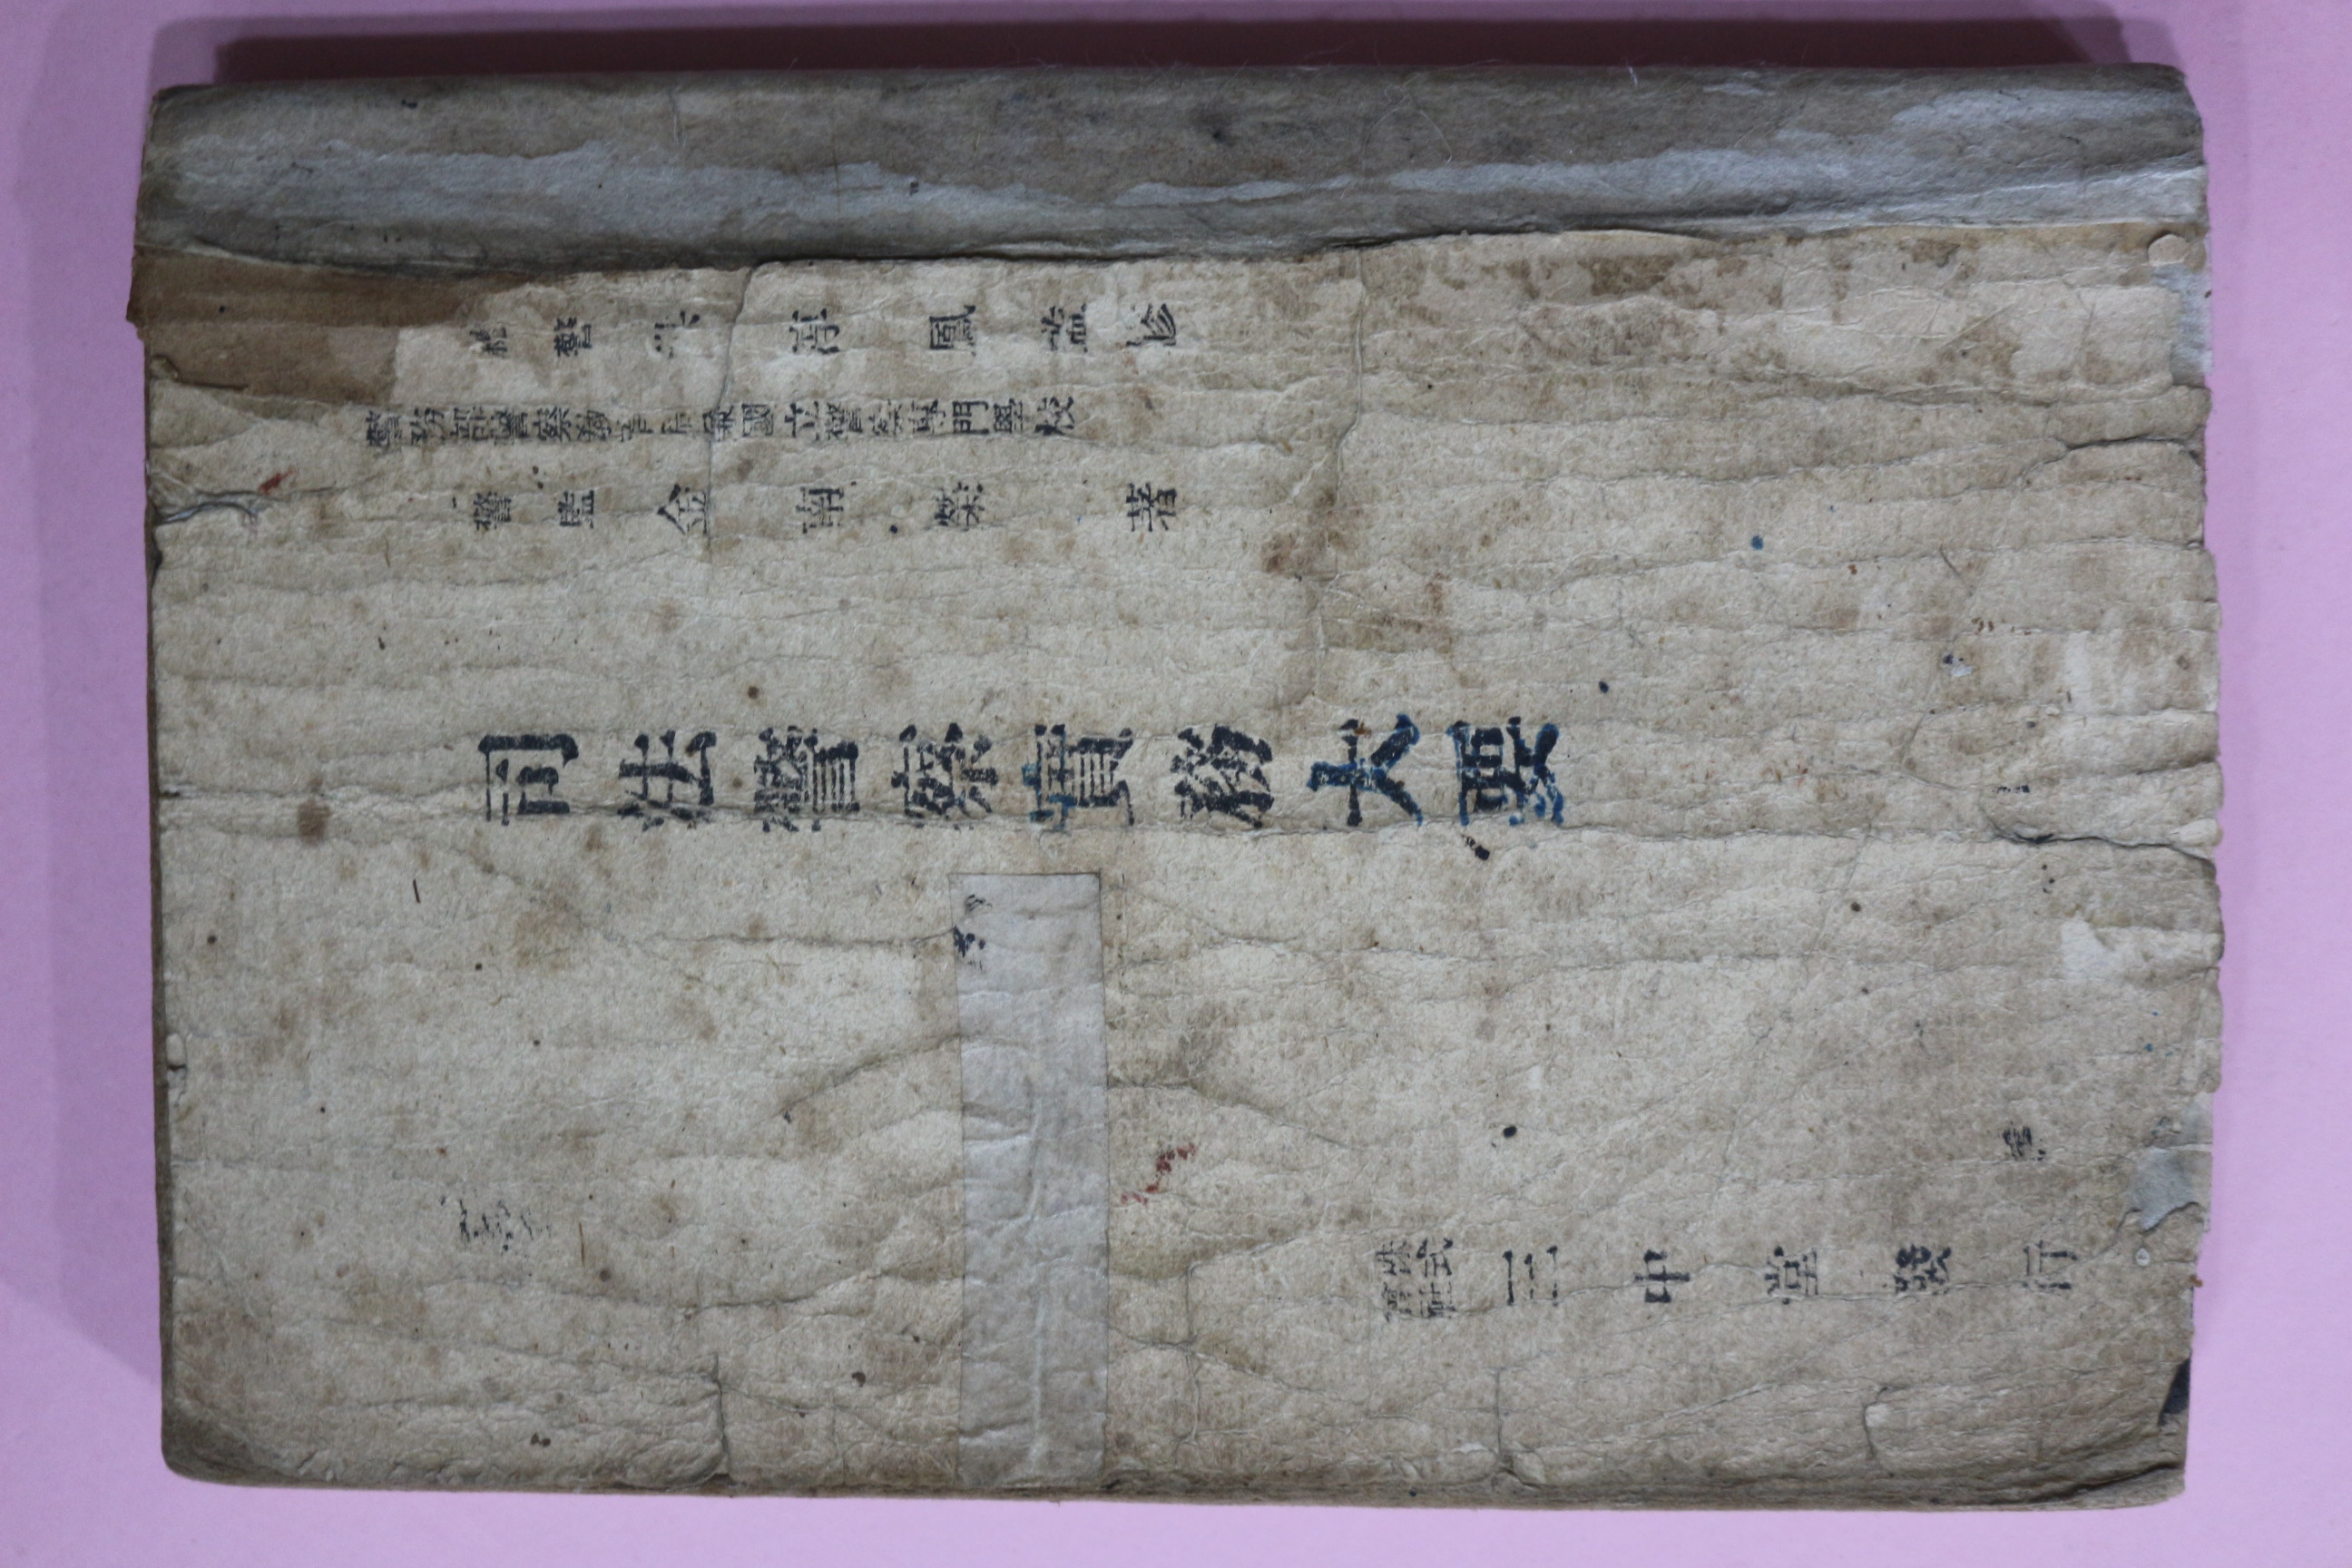 總警 洪淳鳳 監修
警務部警察敎育局兼國立警察專門學校
警監 金南榮 著
司法警察實務大要
株式會社 三中堂發行